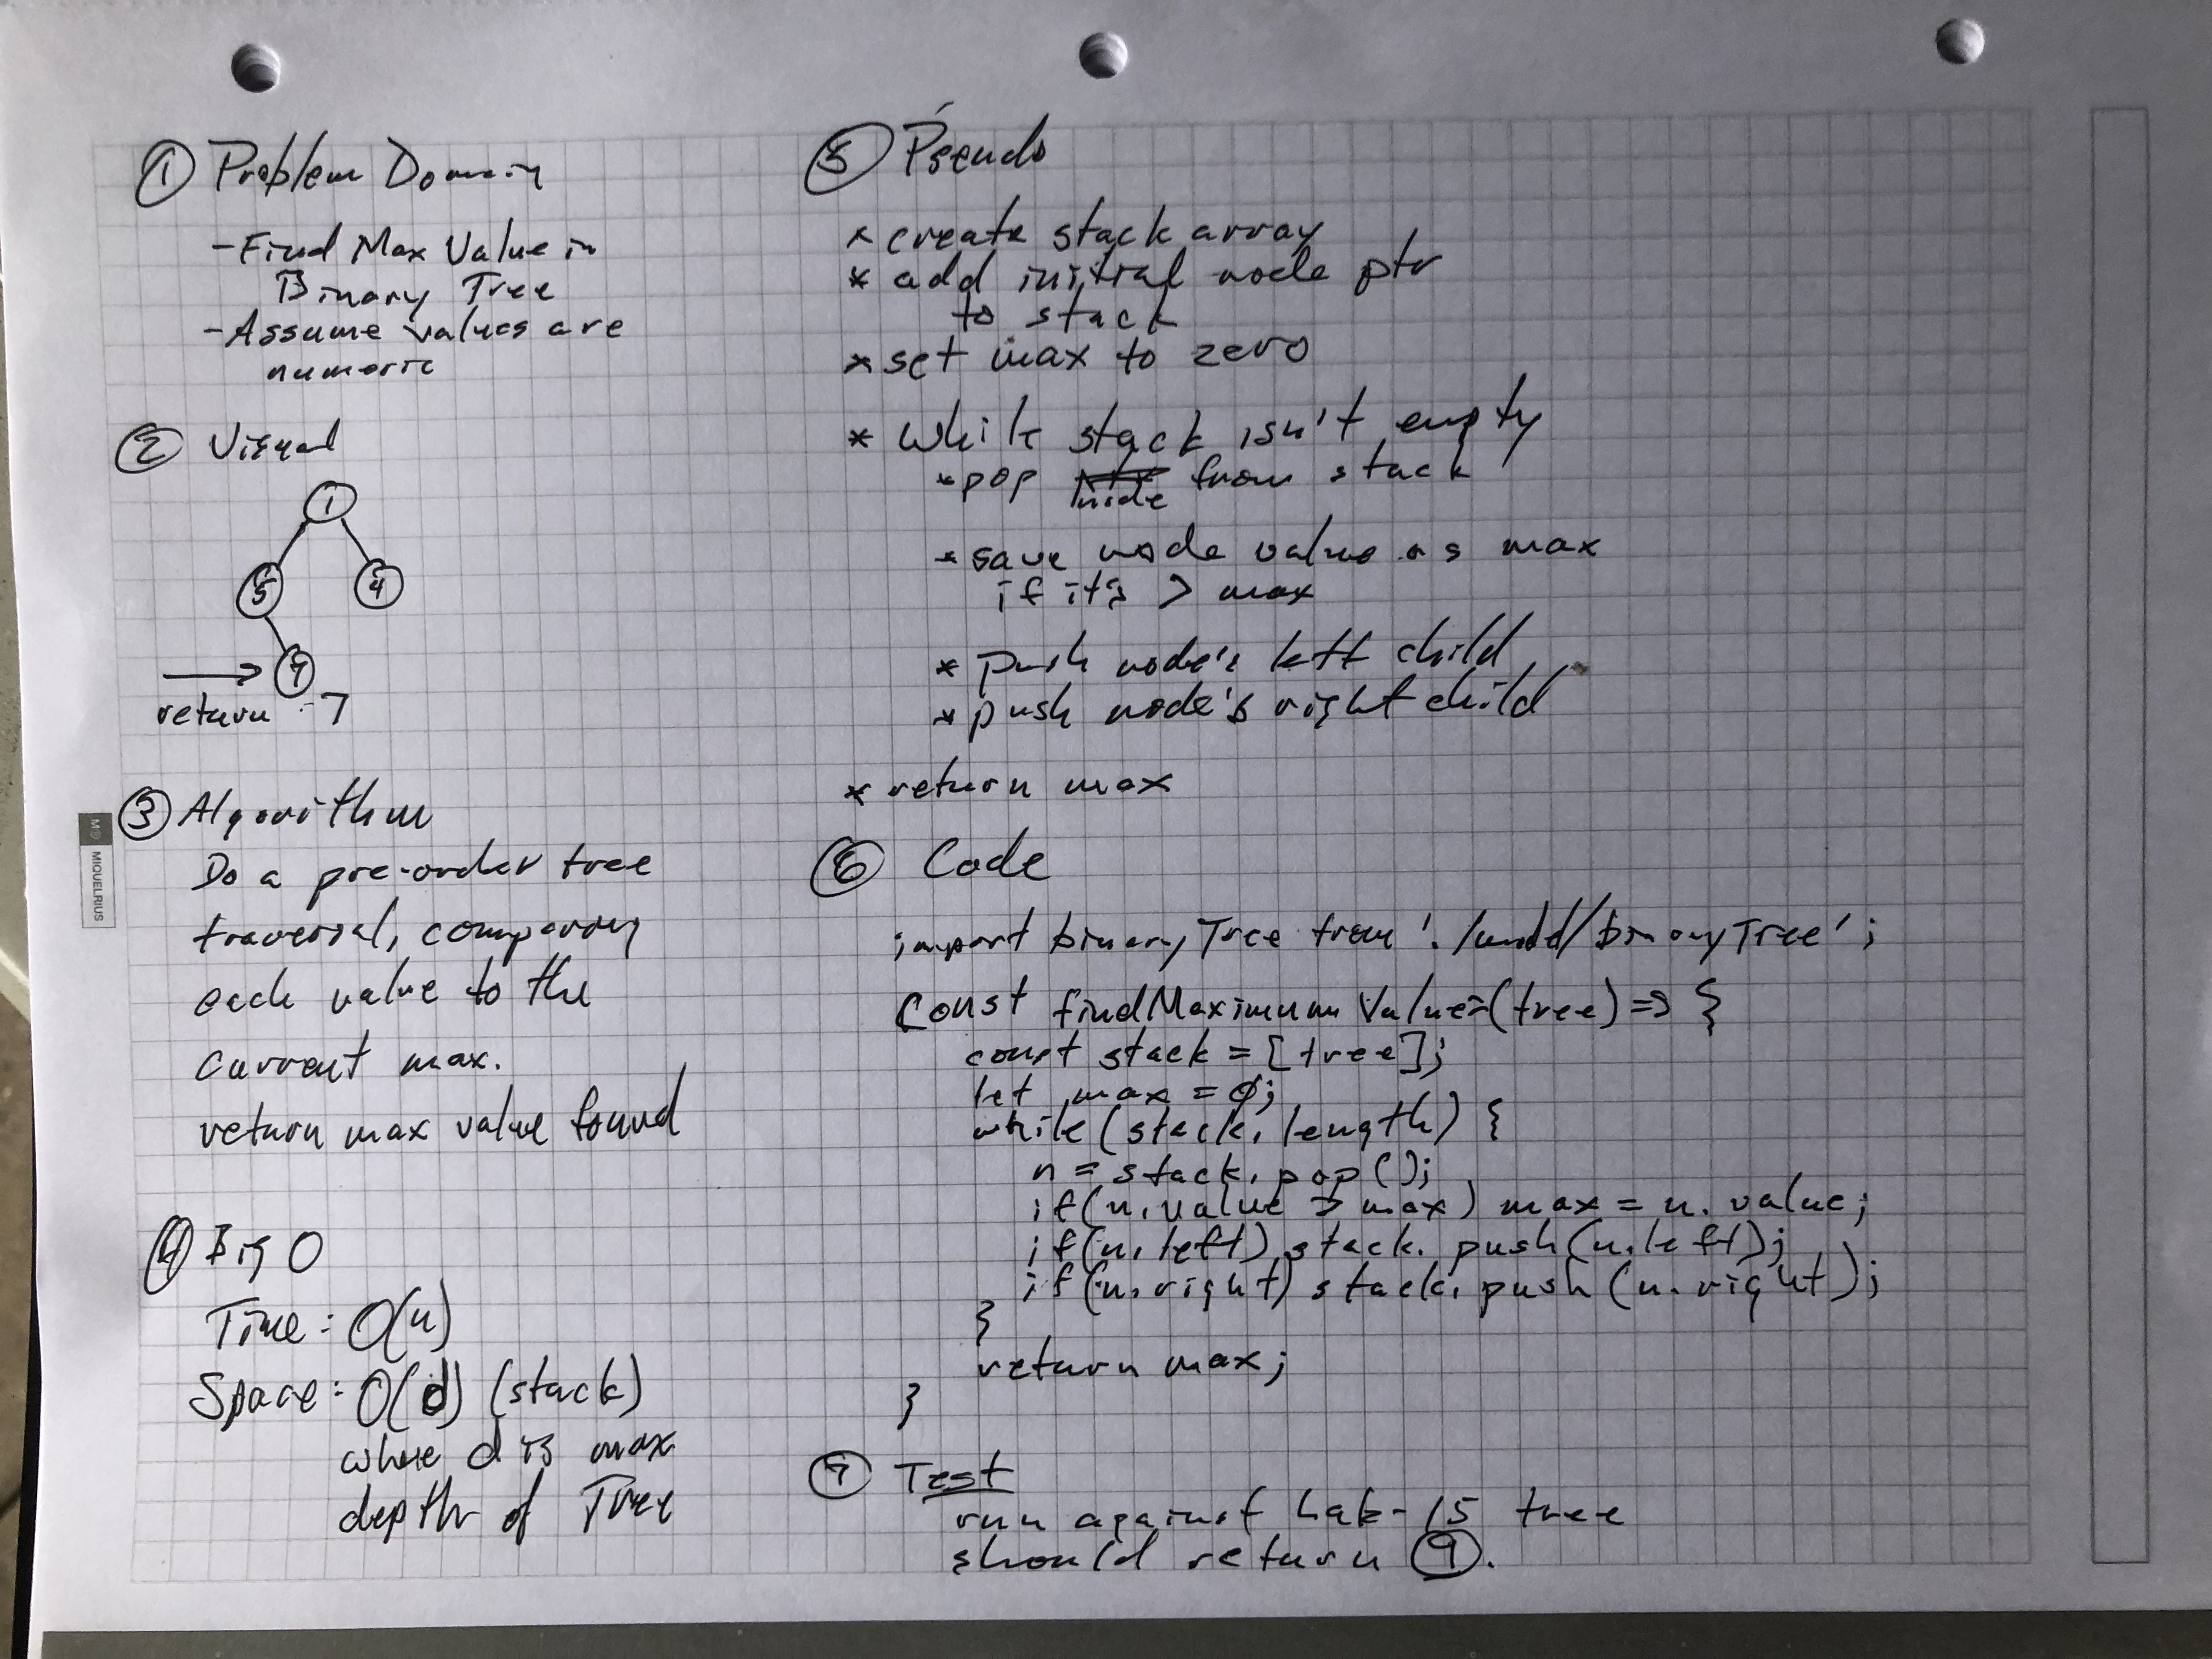 ① Problem Domain
- Find Max Value in
Binary Tree
- Assume values are
numeric
② Visual
1
5 4
7
return 7
③ Algorithm
Do a pre-order tree
traversal, comparing
each value to the
current max.
return max value found
④ Big O
Time: O(n)
Space: O(d) (stack)
where d is max
depth of Tree
M
MIQUELRIUS
⑤ Pseudo
* create stack array
* add initial node ptr
to stack
* set max to zero
* While stack isn't empty
* pop node from stack
* save node value as max
if it's > max
* push node's left child
* push node's right child
* return max
⑥ Code
import binaryTree from './ /binaryTree';
const findMaximumValue=(tree)=> {
const stack = [tree];
let max = 0;
while(stack.length) {
n = stack.pop();
if(n.value > max) max = n.value;
if(n.left) stack.push(n.left);
if(n.right) stack.push(n.right);
}
return max;
}
⑦ Test
run against Lab-15 tree
should return 9.